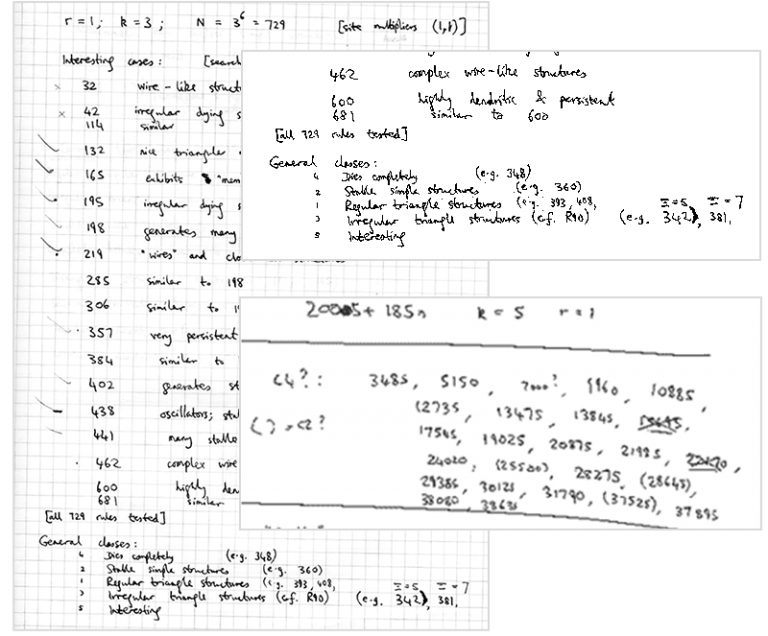 r = 1; k = 3; N = 3^6 = 729 [site multipliers (1,k)]
Interesting cases: [search
32 wire-like struct
42 irregular dying s
114 similar
132 nice triangular
165 exhibits "mem
195 irregular dying s
198 generates many
219 "wires" and clo
285 similar to 198
306 similar to 1
357 very persistent
384 similar to
402 generates st
438 oscillators; stal
441 many stable
462 complex wire
600 highly den
681 similar
[all 729 rules tested]
General classes:
4 Dies completely (e.g. 348)
2 Stable simple structures (e.g. 360)
1 Regular triangle structures (e.g. 393, 408, Ξ=5, Ξ=7
3 Irregular triangle structures (cf. R90) (e.g. 342), 381,
5 Interesting
462 complex wire-like structures
600 highly dendritic & persistent
681 similar to 600
[all 729 rules tested]
General classes:
4 Dies completely (e.g. 348)
2 Stable simple structures (e.g. 360)
1 Regular triangle structures (e.g. 393, 408, Ξ=5, Ξ=7
3 Irregular triangle structures (cf. R90) (e.g. 342), 381,
5 Interesting
20005 + 185n k = 5 r = 1
C4?: 3485, 5150, 7000?, 10885
(12735, 13475, 13845,
17545, 19025, 20875, 21985,
24020, (25500), 28275, (28645),
29385, 30125, 31790, (37525), 37895
38080, 38635